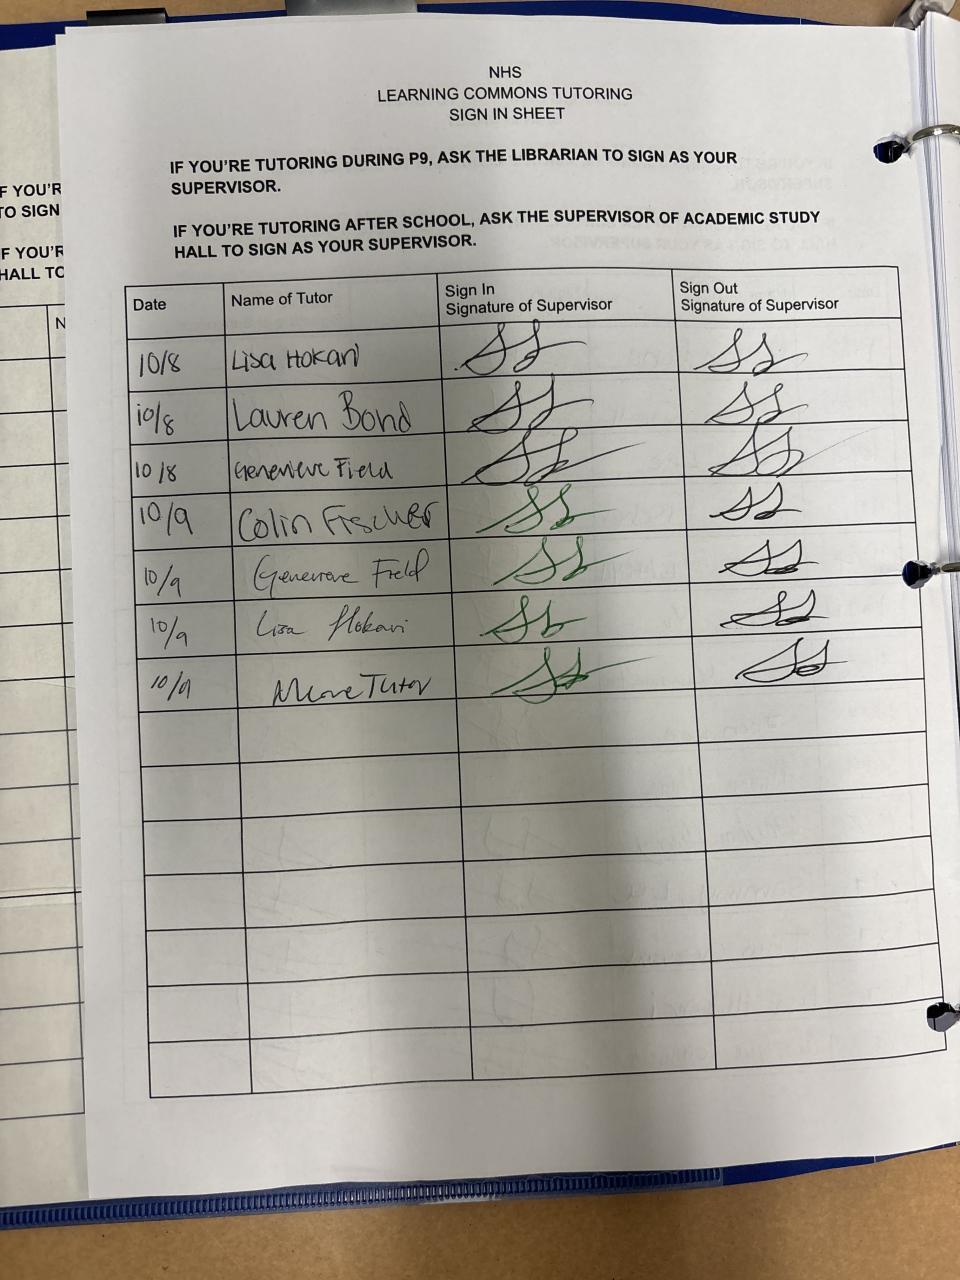 NHS
LEARNING COMMONS TUTORING
SIGN IN SHEET
IF YOU'RE TUTORING DURING P9, ASK THE LIBRARIAN TO SIGN AS YOUR
SUPERVISOR.
IF YOU'RE TUTORING AFTER SCHOOL, ASK THE SUPERVISOR OF ACADEMIC STUDY
HALL TO SIGN AS YOUR SUPERVISOR.
F YOU'R
TO SIGN
F YOU'R
HALL TO
N
Date Name of Tutor Sign In Signature of Supervisor Sign Out Signature of Supervisor
10/8 Lisa Hokari SS SS
10/8 Lauren Bond SS SS
10/8 Genevieve Field SS SS
10/9 Colin Fischer SS SS
10/9 Genevieve Field SS SS
10/9 Lisa Hokari SS SS
10/9 Tutor SS SS